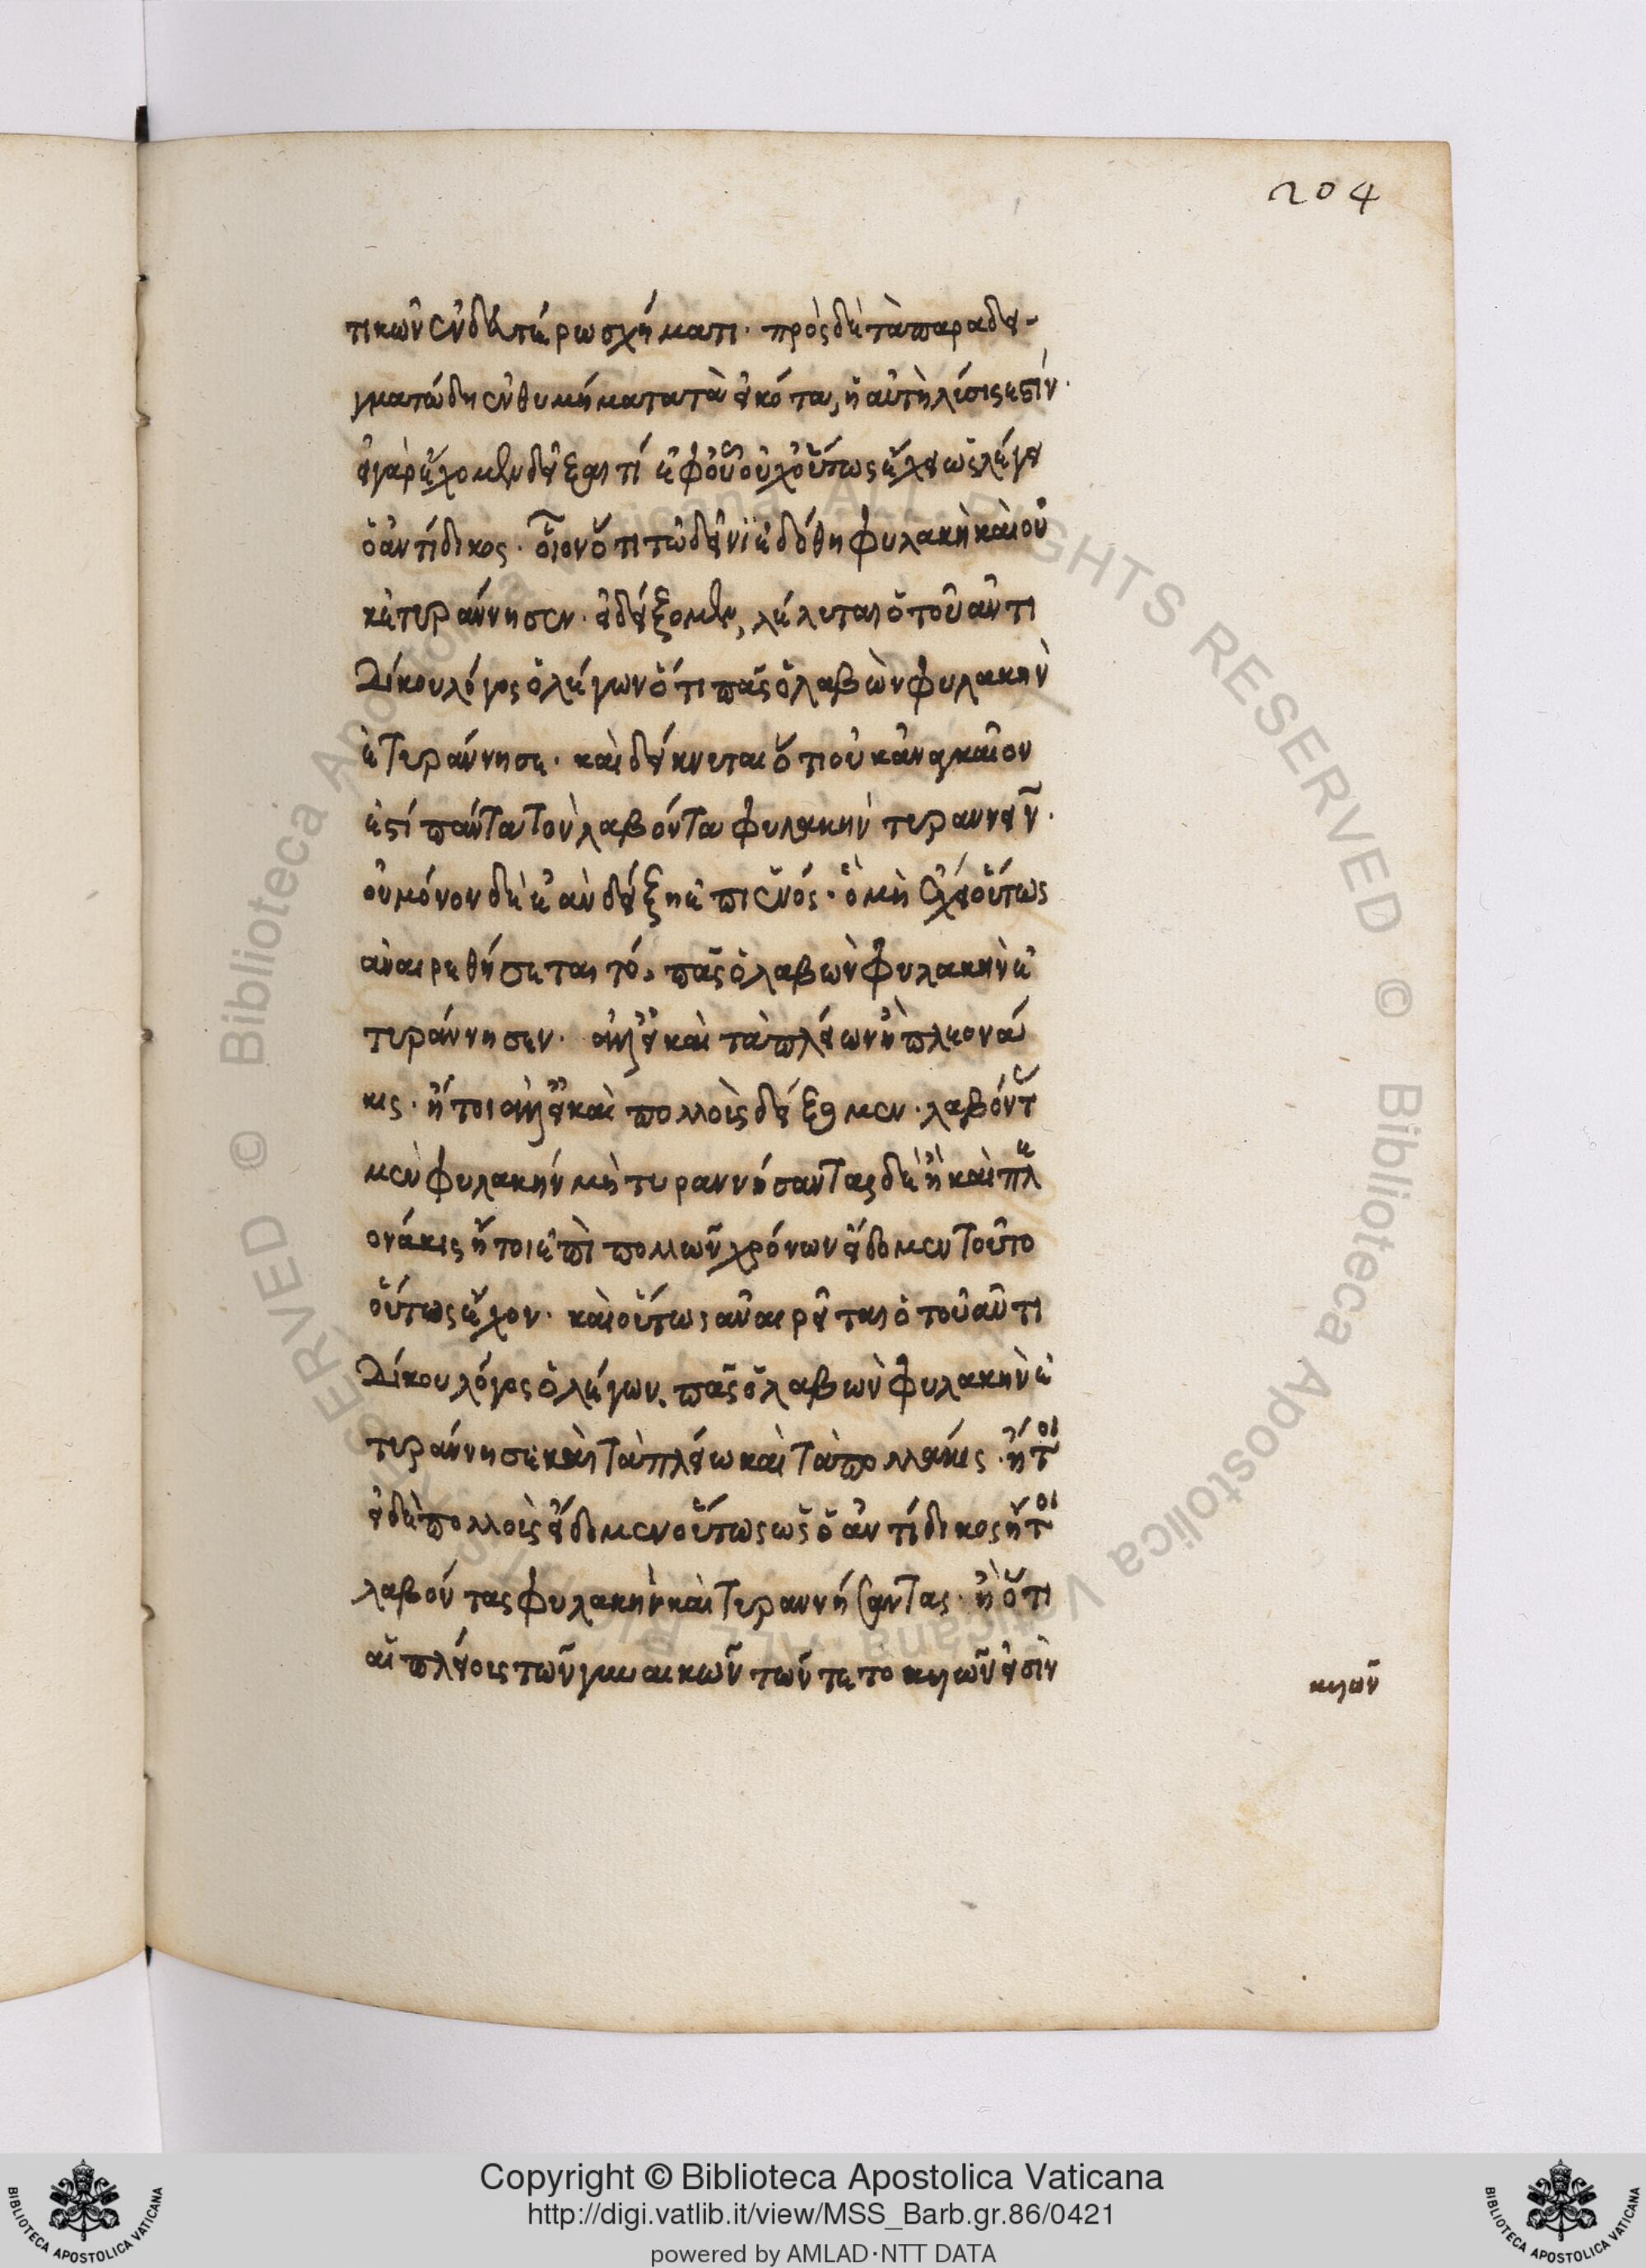 204
τικῶν ἐν δευτέρω σχήματι· πρὸς δὲ τὰ παραδει-
γματώδη ἐνθυμήματα τὰ εἰκότα, ἡ αὐτὴ λύσις ἐστίν·
εἰ γὰρ ἔχομεν δεῖξαι τί ἐφ' οὗ οὐχ οὕτως ἔχει ὡς λέγει
ὁ ἀντίδικος· οἷον ὅτι τῶ δεῖνι ἐδόθη φυλακὴ καὶ οὐ
κ ἐτυράννησεν· εἰ δείξομεν, λέλυται ὁ τοῦ ἀντι
δίκου λόγος ὁ λέγων ὅτι πᾶς ὁ λαβὼν φυλακὴν
ἐτυράννησε· καὶ δείκνυται ὅτι οὐκ ἀναγκαῖον
ἐστί πάντα τὸν λαβόντα φυλακὴν τυραννεῖν·
οὐ μόνον δὲ ἐὰν δείξη ἐπὶ ἑνός· ὃ μὴ ἔχει οὕτως
ἀναιρεθήσεται τό, πᾶς ὁ λαβὼν φυλακὴν ἐ
τυράννησεν· ἀλλ' εἰ καὶ τὰ πλείω ἢ πλεονά
κις· ἤτοι ἀλλ' εἰ καὶ πολλοὺς δείξομεν· λαβόντας
μὲν φυλακήν μὴ τυραννήσαντας δέ ἢ καὶ πλε
ονάκις ἤτοι ἐπὶ πολλῶν χρόνων εἴδομεν τοῦτο
οὕτως ἔχον· καὶ οὕτως ἀναιρεῖται ὁ τοῦ ἀντι
δίκου λόγος ὁ λέγων, πᾶς ὁ λαβὼν φυλακὴν ἐ
τυράννησε καὶ τὰ πλείω καὶ τὰ πολλάκις· ἤτοι
εἰ δὲ πολλοὺς εἴδομεν οὕτως ὡς ὁ ἀντίδικος ἤτοι
λαβόντας φυλακὴν καὶ τυραννήσαντας· ἢ ὅτι
αἱ πλείους τῶν γυναικῶν τῶν τετοκυιῶν εἰσὶν
κυιῶν
Copyright © Biblioteca Apostolica Vaticana
http://digi.vatlib.it/view/MSS_Barb.gr.86/0421
powered by AMLAD·NTT DATA